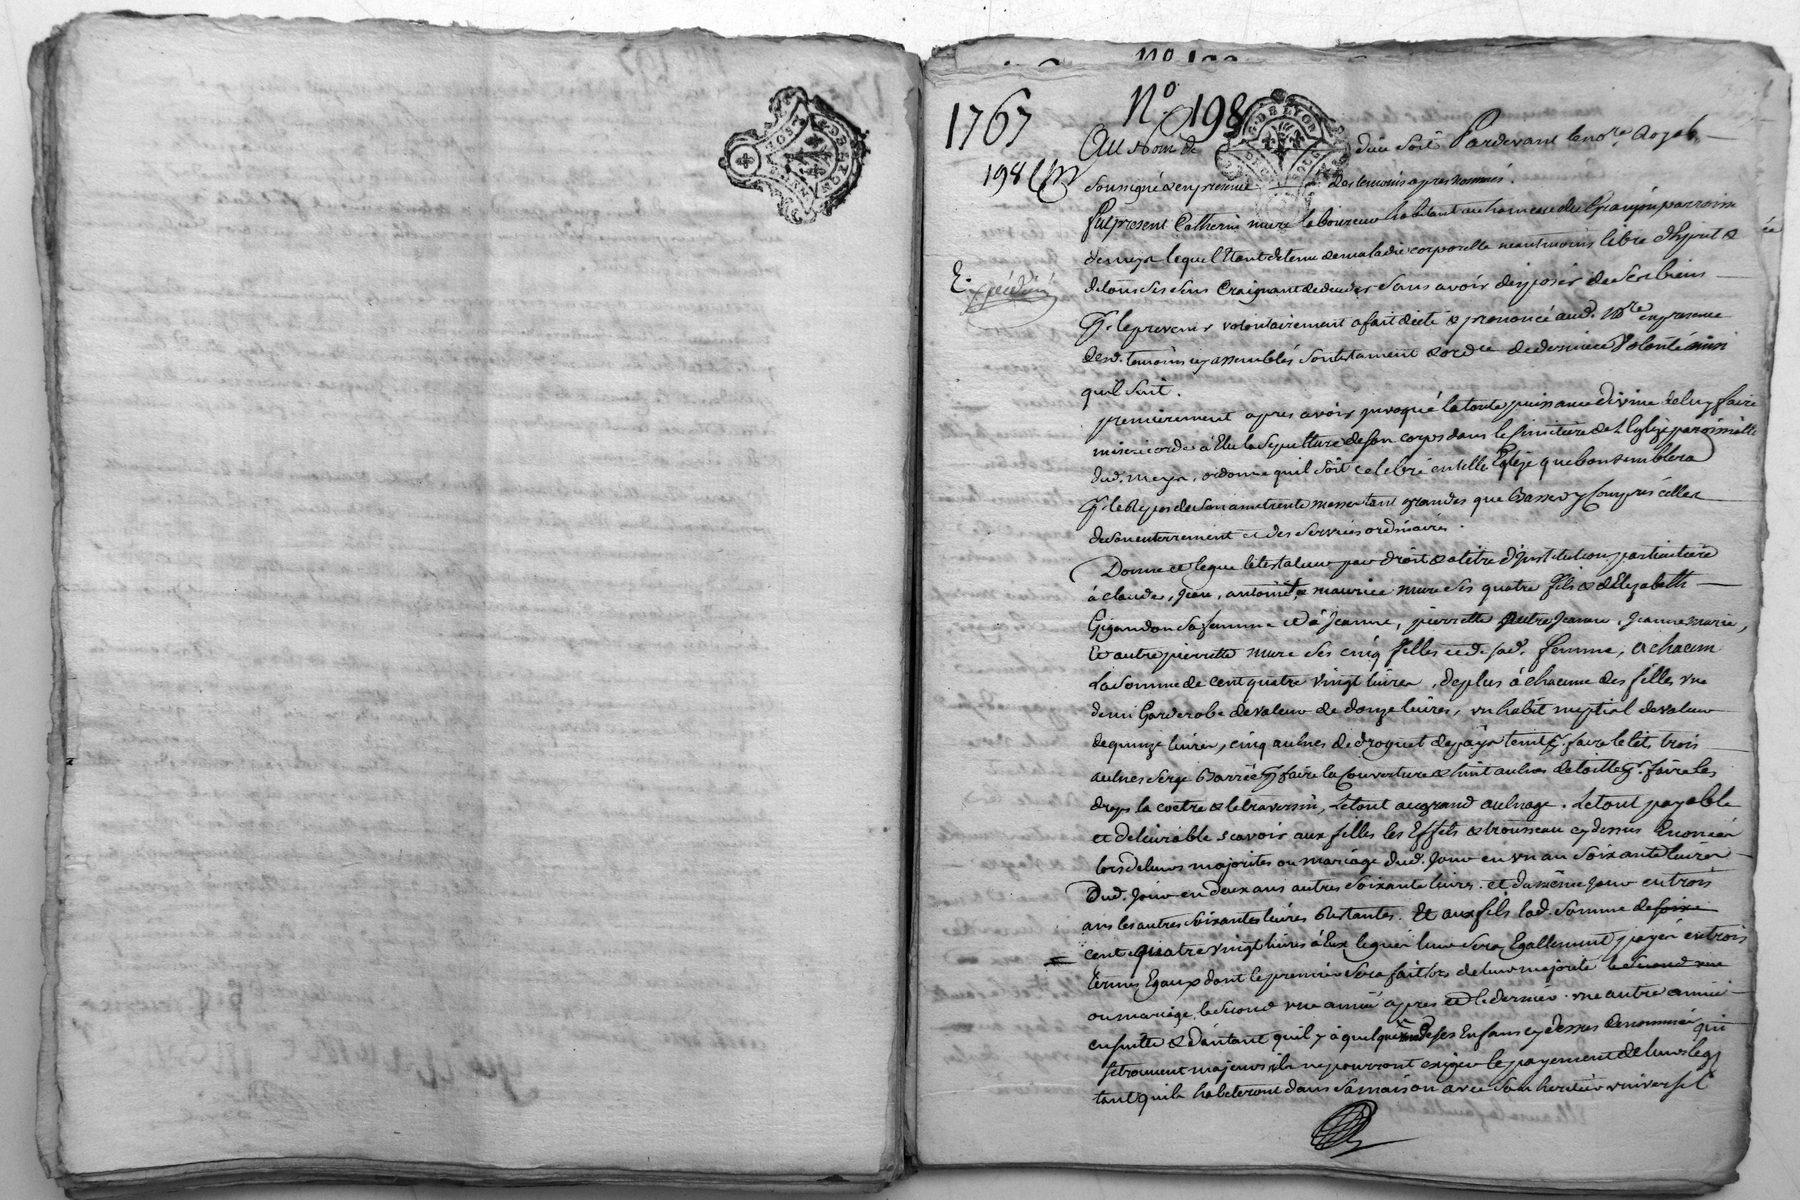 1767
N.º 198
198
Au Nom de Dieu soit Pardevant le no.re Royal
soussigné & en presence des temoins apres nommés.
fut present Catherin mure laboureur habitant au hameau du parroisse
de meys lequel Etant detenu de maladie corporelle neantmoins libre d'Esprit &
de tous ses sens Craignant de deceder sans avoir disposer de ses biens
pr. le prevenir volontairement a fait dicté & prononcé aud. No.re en presence
desd. temoins cy assemblés son testament & ord.ce de derniere volonté ainsi
quil suit.
premierement apres avoir jnvoqué la toute puissance divine de luy faire
misericorde à Elu la sepulture de son corps dans le simitiere de l'Eglize paroissialle
dud. meys, ordonne quil soit celebré en telle Eglize que bon semblera
pr. le repos de son ame trente messes tant grandes que Basses y Compris celles
de son enterrement et des services ordinaires.
Donne et legue le testateur par droit & a titre d'jnstitution particuliere
à claude, jean, antoine & maurice mure ses quatre fils & d'Elizabeth
Gigandon sa femme et à jeanne, pierrette autre jeanne, jeanne marie,
Et autre pierrette mure ses cinq filles et de sad. femme, a chacun
la somme de cent quatre vingt livres, de plus à chacune des filles une
demi Garderobe de valeur de douze livres, un habit nuptial de valeur
de quinze livres, cinq aulnes de droguet de pays teint pr. faire le lit, trois
aulnes serge Barrée pr faire la Couverture & huit aulnes de toille pr. faire les
draps la coetre & le traversin, le tout au grand aulnage. Le tout payable
et delivrable scavoir aux filles les Effets & trousseau cy dessus Enoncés
lors de leurs majorites ou mariage dud. jour en un an soixante livres
Dud. jour en deux ans autres soixante livres. et du même jour en trois
ans les autres soixantes livres restantes. Et aux fils lad. somme de soixe
cent quatre vingt livres à Eux leguée leur sera Egallement payée en trois
termes Egaux dont le premier sera fait lors de leur majorité le second une
ou mariage, le second une année apres et le dernier une autre année
ensuitte & d'autant quil y à quelques uns de ses Enfans cy dessus denommés qui
se trouvent majeurs ils ne pourront exiger le payement de leurs legs
tant quils habiteront dans sa maison avec son heritier universel